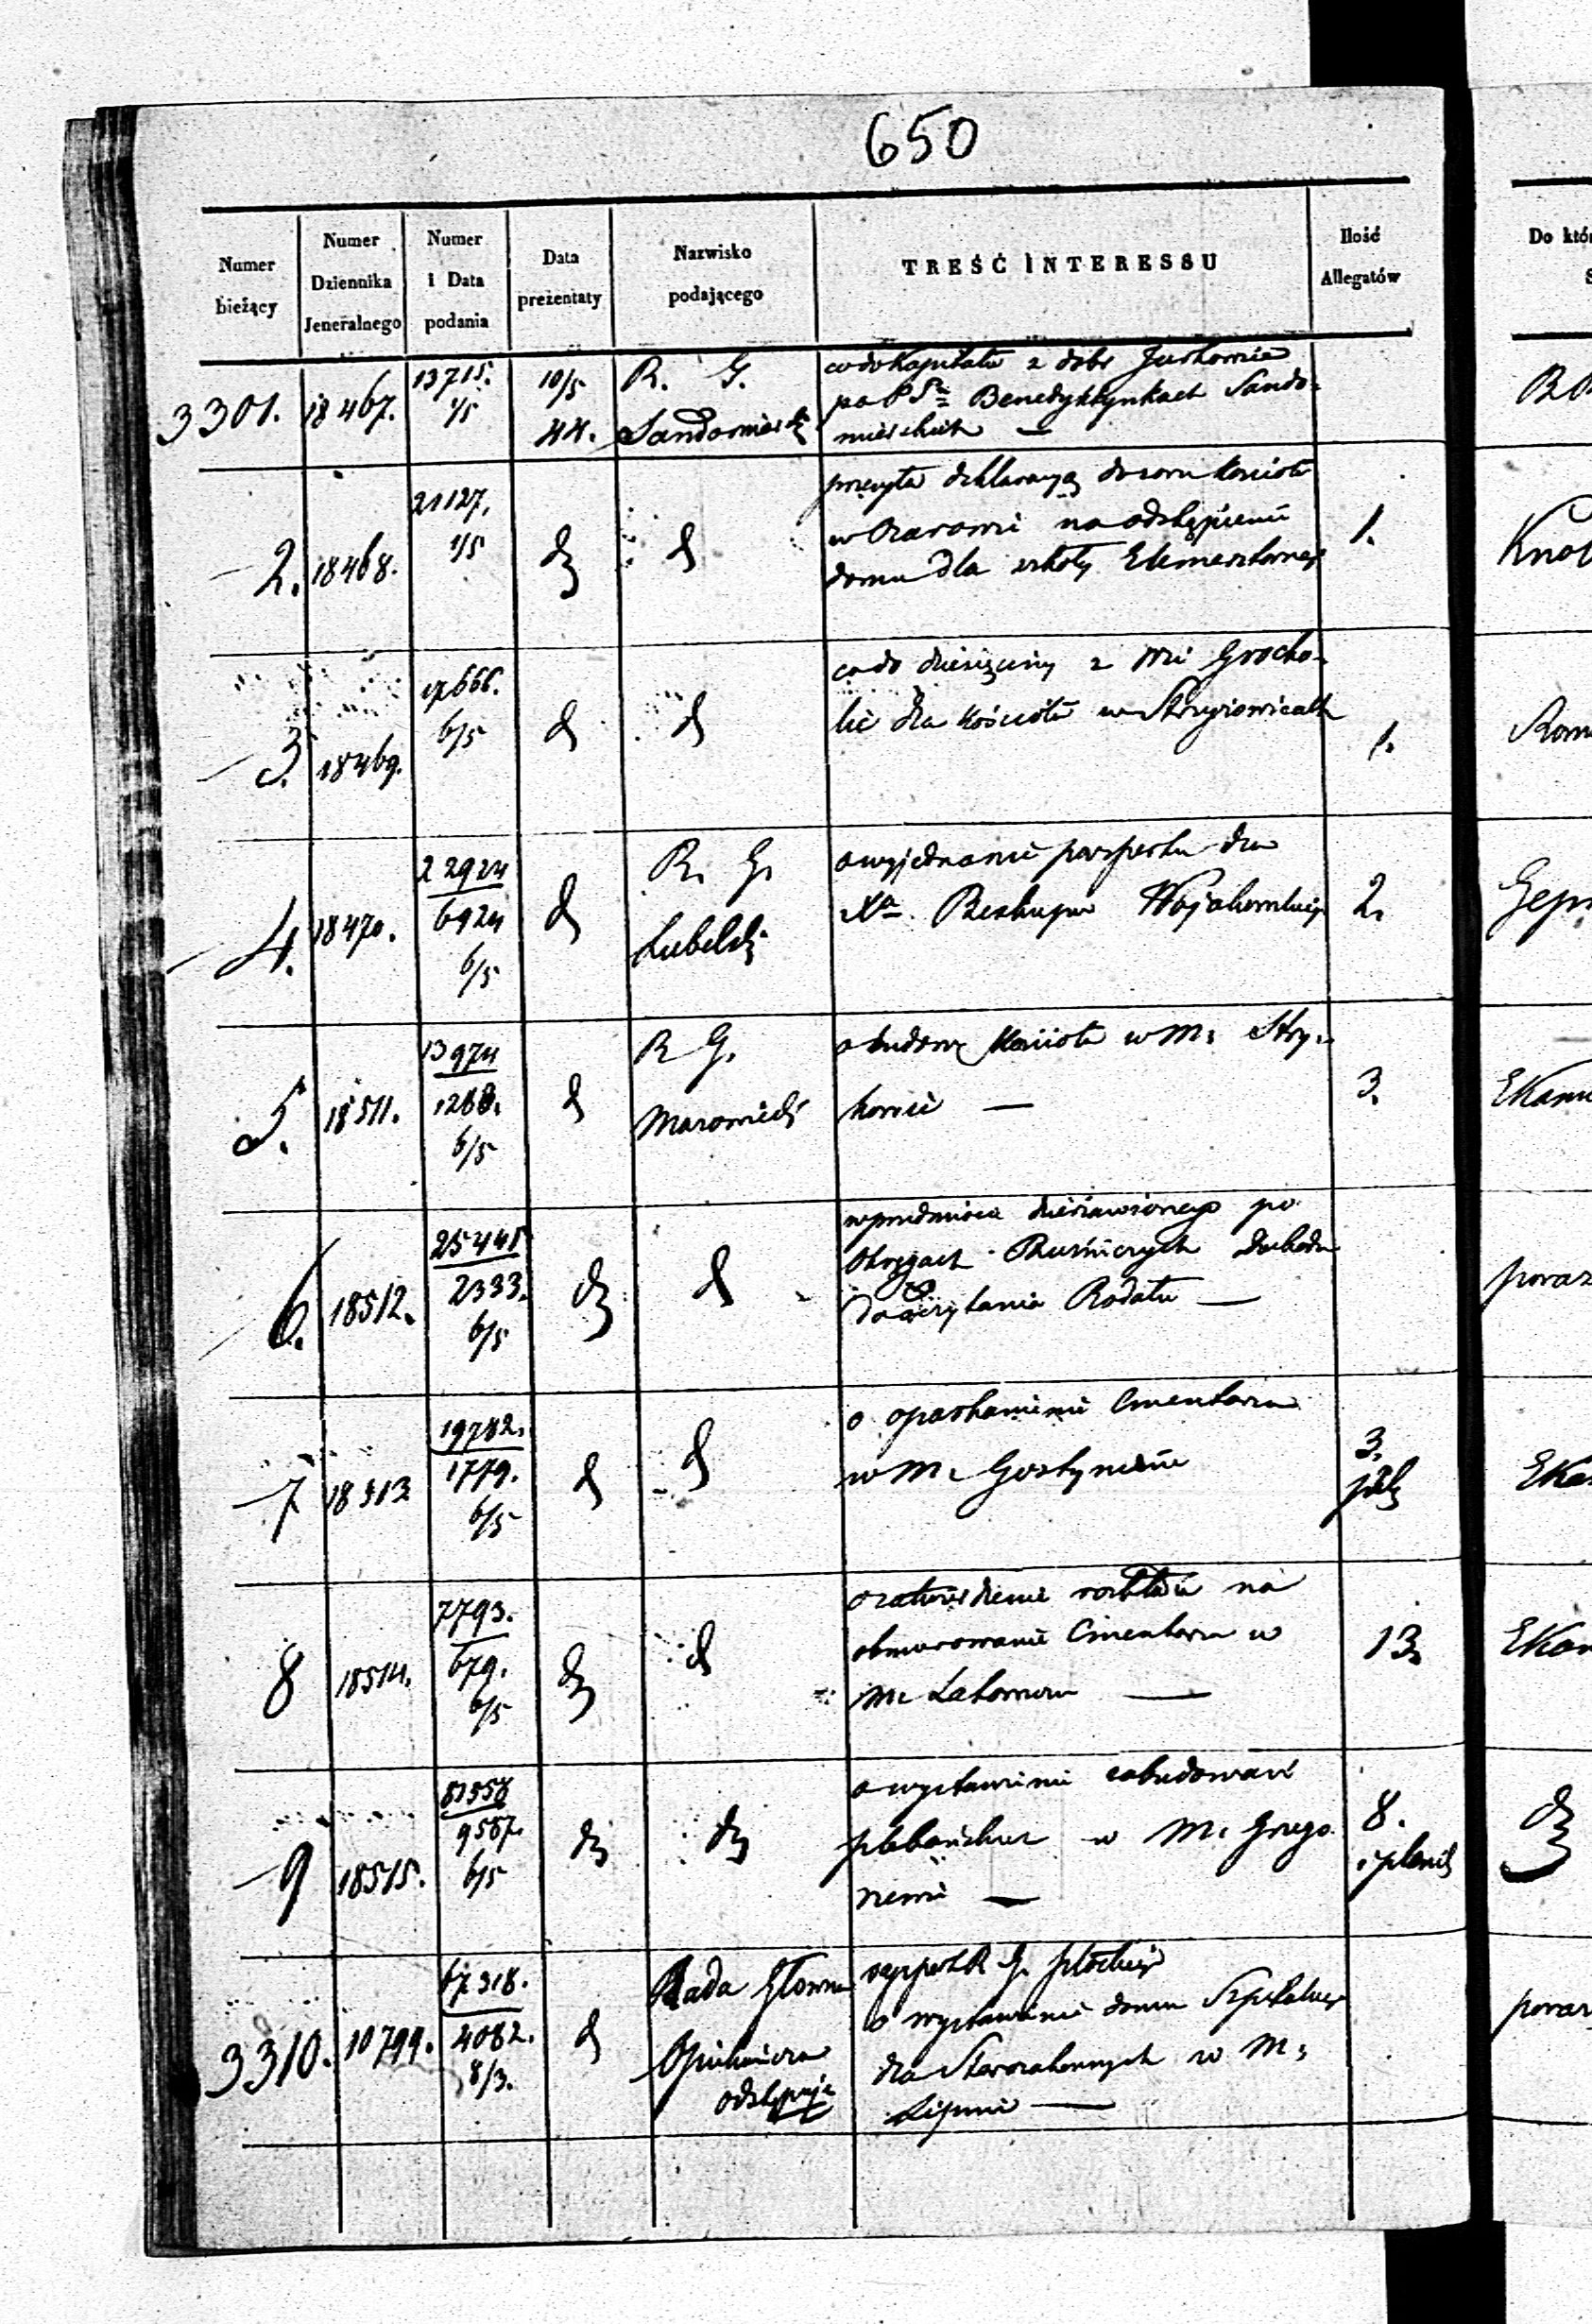 650
Numer bieżący
Numer Dziennika Jeneralnego
Numer i Data podania
Data prezentaty
Nazwisko podającego
TREŚĆ INTERESSU
Ilość Allegatów
Do któr
3301. 18467. 13715. 1/5 10/5 44. R. G. Sandomierski
co do Kapitału z dóbr Jurkowice
po PP Benedyktynkach Sando-
mierskich —
R
2. 18468. 21127. 1/5 d d
przesyła deklaracyą dozoru kościoła
w Ożarowie na odstąpienie
domu dla szkoły Elementarnej
1.
3. 18469. 17666. 6/5 d d
co do dziesięciny z Wsi Grocho-
lic dla kościoła w
1.
Rom
4. 18470. 22924 6924 6/5 d R. G. Lubelski
o wyjednanie paszportu dla
Xa Biskupa
2.
5. 18511. 13974 1288. 6/5 d R G. Mazowiecki
o budowę Kościoła w M: Stry-
kowie —
3.
EKanu
6. 18512. 25441 2333. 6/5 d d
w przedmiocie dzierżawionego po
Okręgach Bożniczych dochodu
do czytania Rodału —
poraz
7 18513 19782. 1779. 6/5 d d
o oparkanienie Cmentarza
w M: Gostyninie
3.
EKa
8 18514. 7793. 679. 6/5 d d
o zatwierdzenie rozkładu na
obmurowanie Cmentarza w
M: —
13.
EKan
9 18515. 81558 9587. 6/5 d d
o wystawienie zabudowań
plebańskich w M:
8.
i plany
d
3310. 10799. 67318. 4082. 8/3. d Rada Główna
Opiekuńcza
odstępuje
rapport R G. Płockiej
o wystawienie domu Szpitalnego
dla Starozakonnych w M:
Lipnie —
poraz